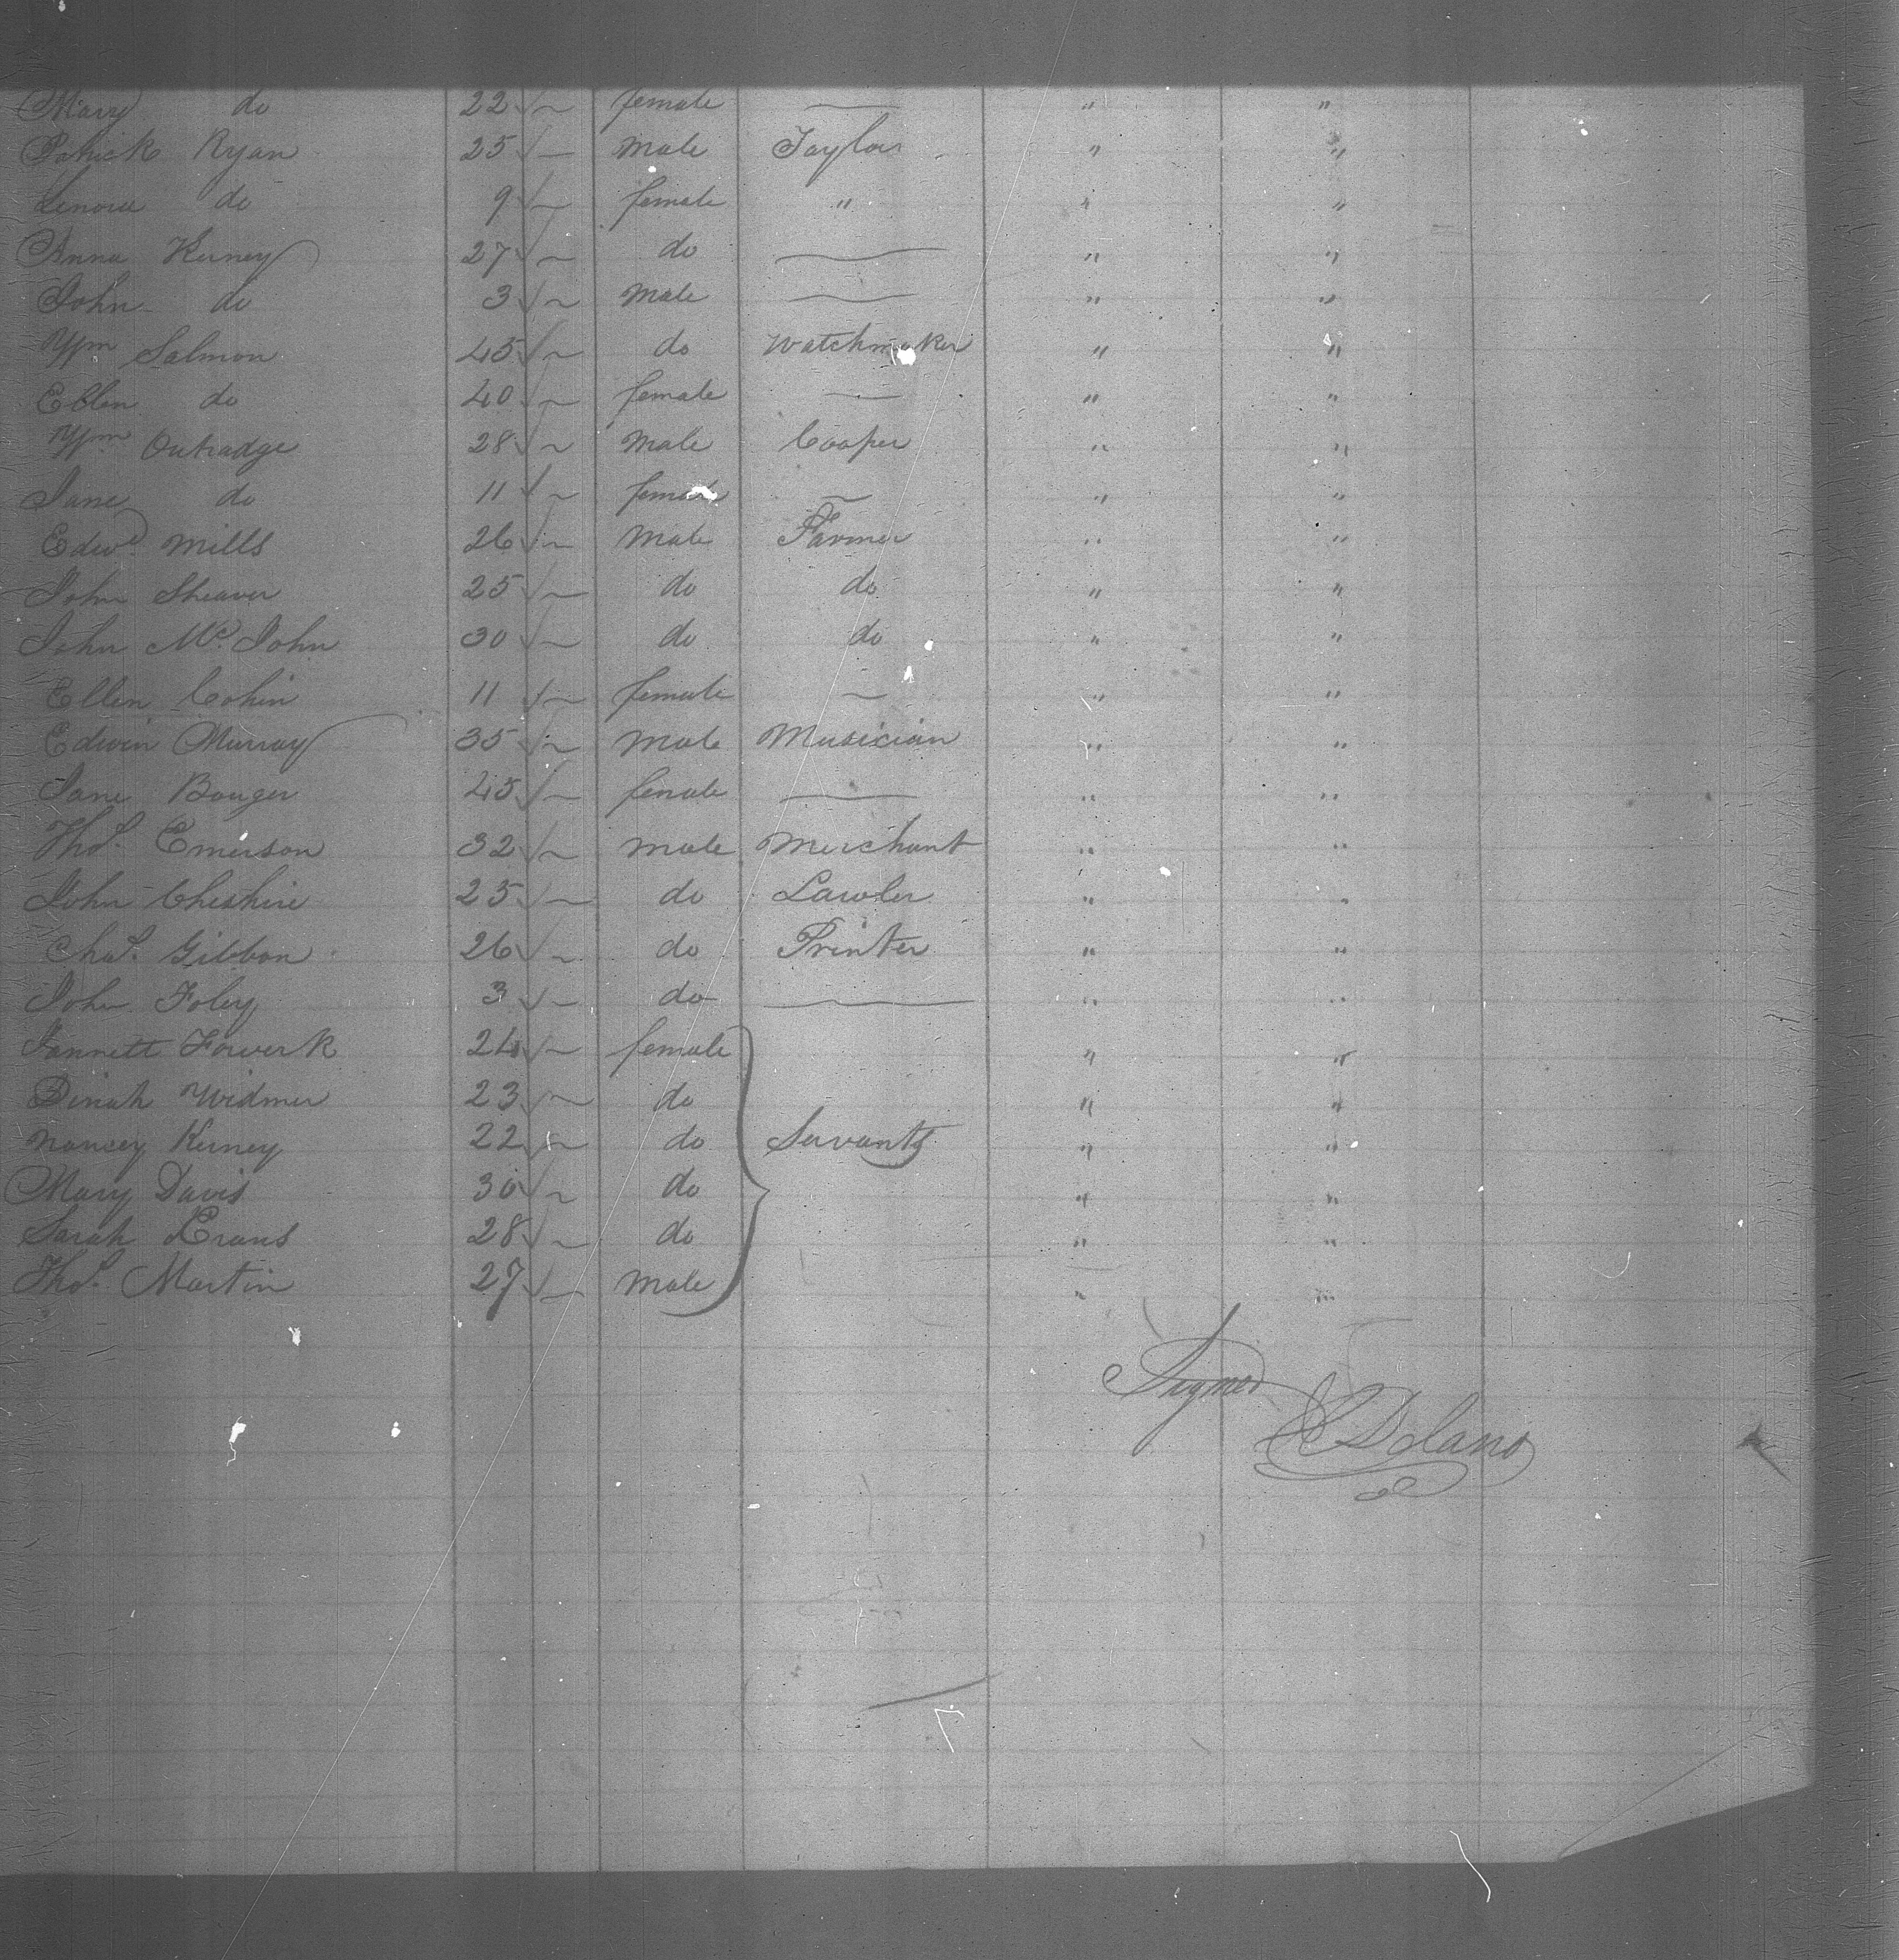 Mary do 22 ~ female — " "
Patrick Ryan 25 — Male Taylor " "
Lenora do 9 ~ female " " "
Anna Kerney 27 ~ do — " "
John do 3 ~ Male — " "
Wm Salmon 45 ~ do Watchmaker " "
Ellen do 40 ~ female — " "
Wm Outradge 28 ~ Male Cooper " "
Jane do 11 ~ female — " "
Edwd. Mills 26 ~ Male Farmer " "
John Sheaver 25 ~ do do " "
John Mc. John 30 ~ do do " "
Ellen Cohin 11 ~ female ~ " "
Edwin Murray 35 ~ Male Musician " "
Jane Bouger 45 ~ female — " "
Thos. Emerson 32 ~ male Merchant " "
John Cheshire 25 ~ do Lawler " "
Chas. Gibbon 26 ~ do Printer " "
John Foley 3 ~ do — " "
Jannett Fowerk 24 ~ female " "
Dinah Widmer 23 ~ do " "
Nancey Kerney 22 ~ do Servants " "
Mary Davis 30 ~ do " "
Sarah Evans 28 ~ do " "
Thos. Martin 27 ~ Male " "
Signed
Delano